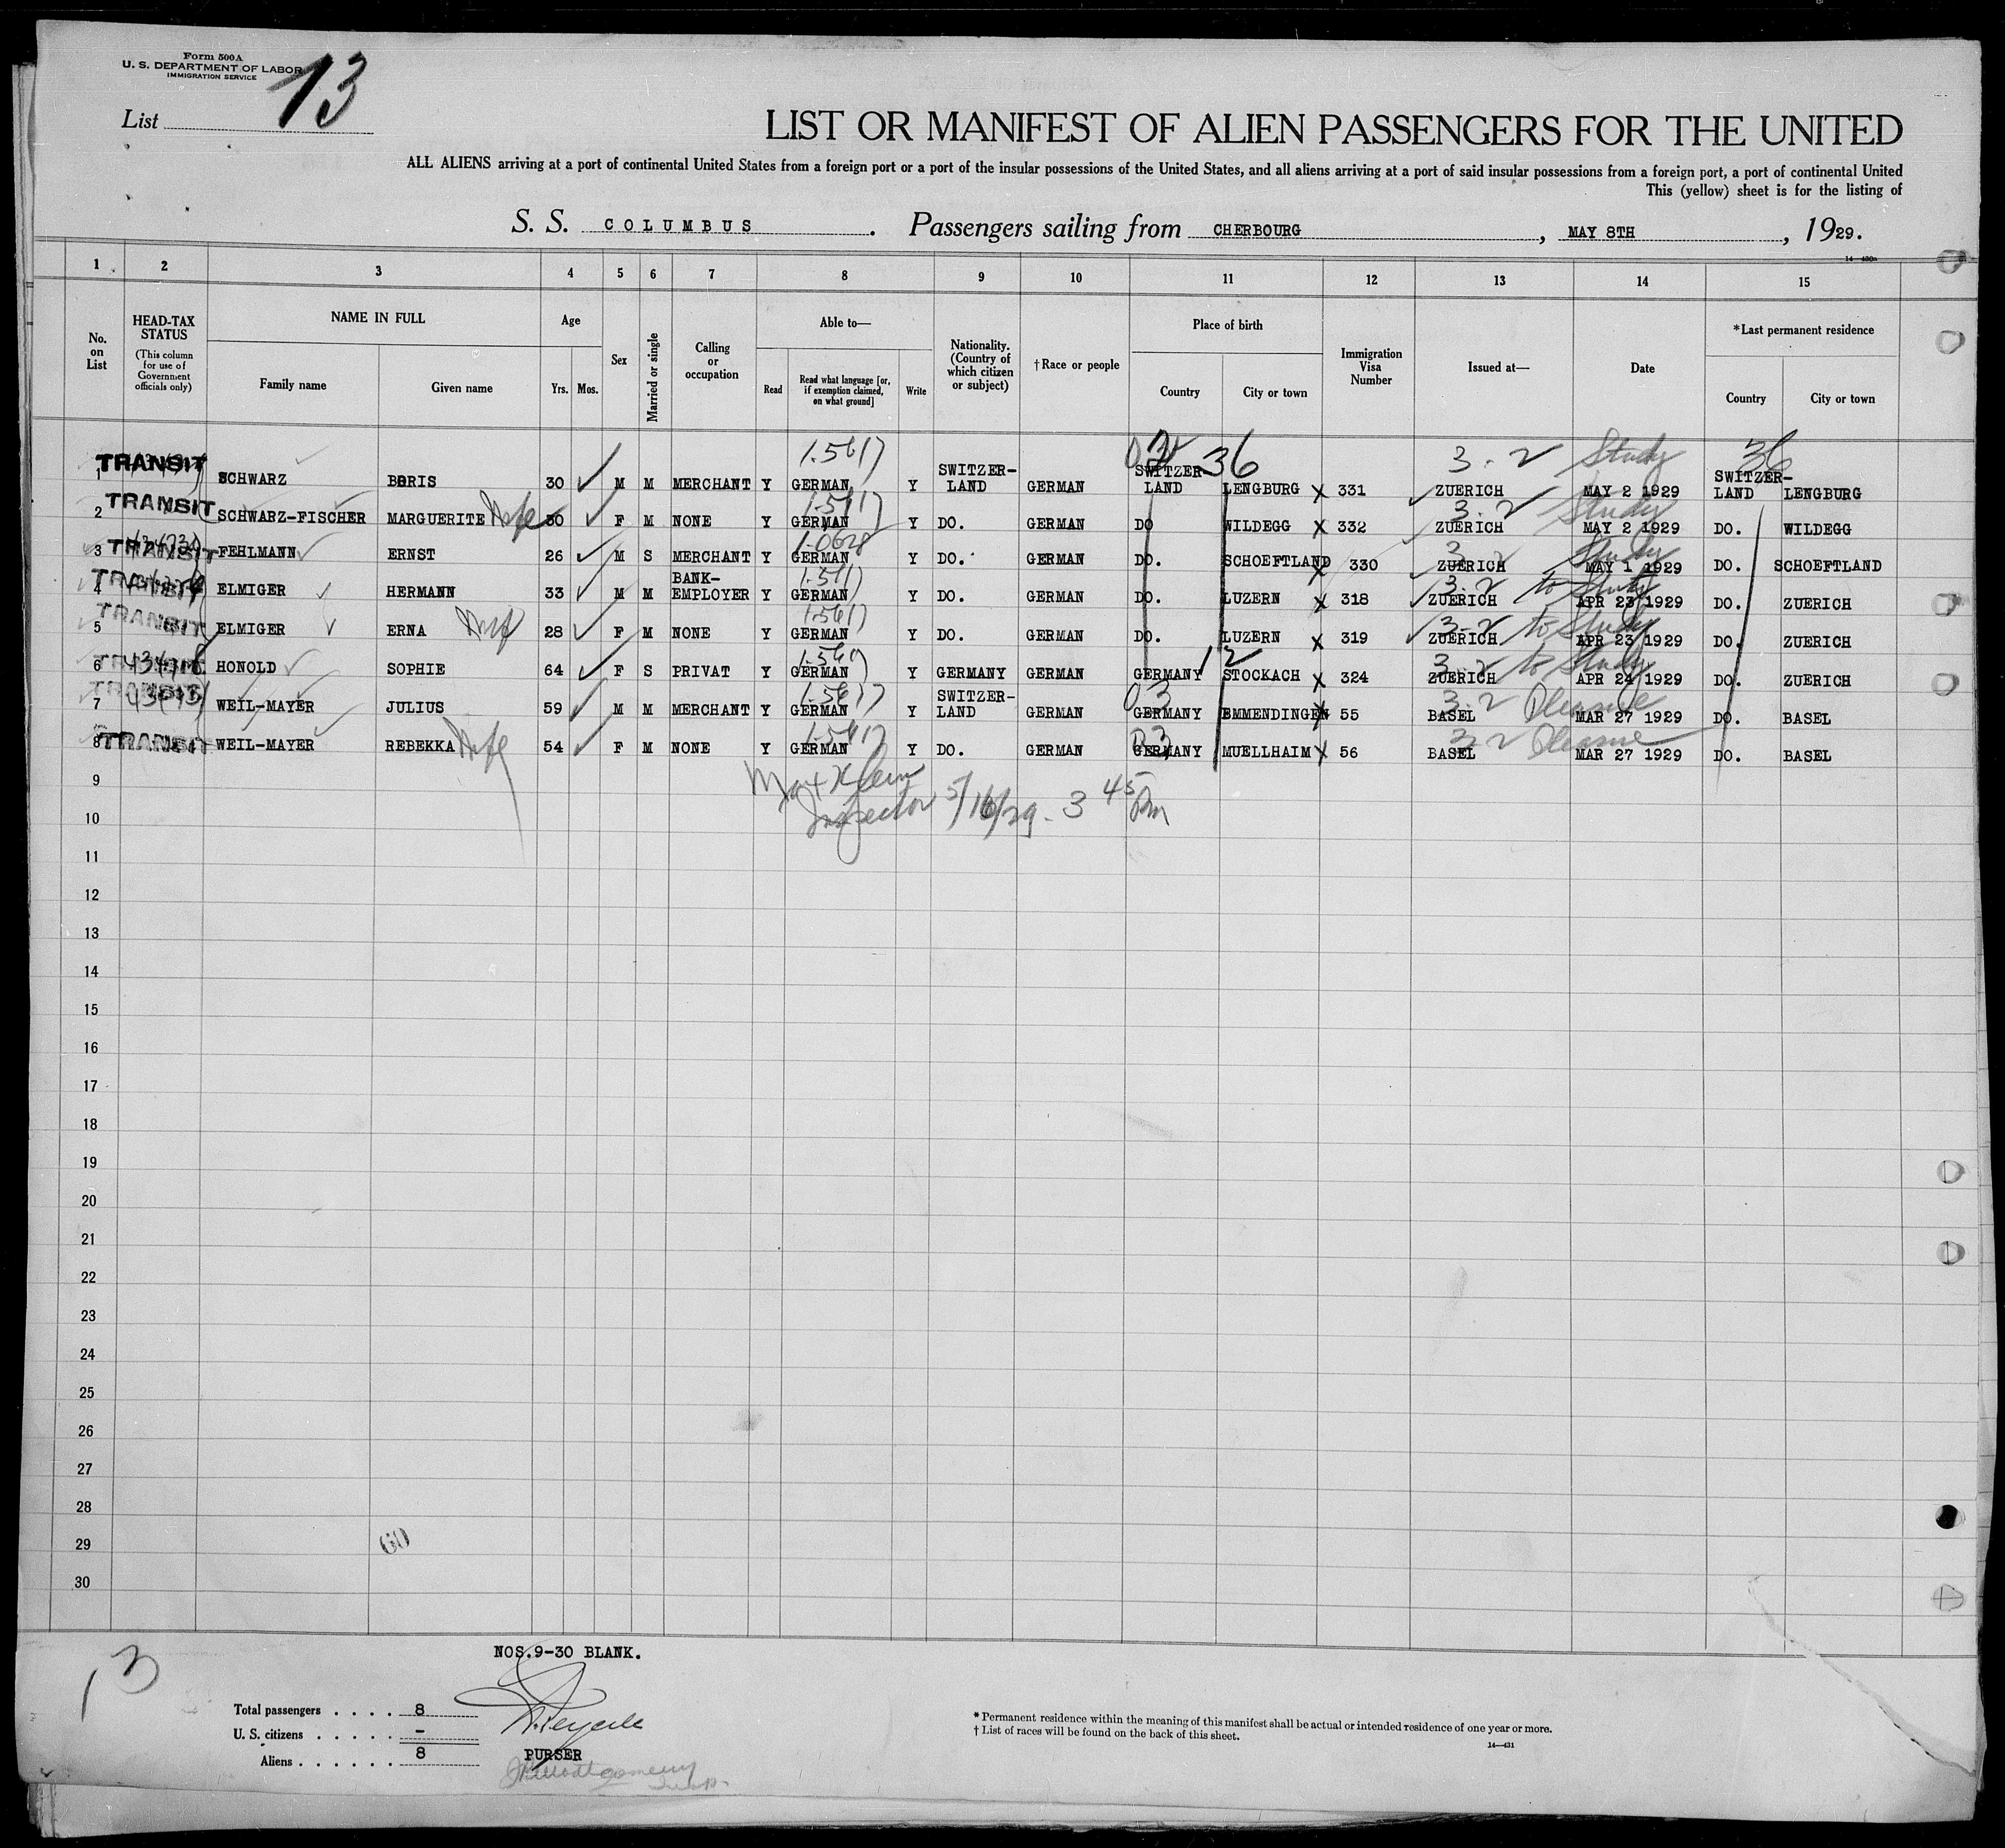 Form 500A
U. S. DEPARTMENT OF LABOR
IMMIGRATION SERVICE
List 13
LIST OR MANIFEST OF ALIEN PASSENGERS FOR THE UNITED
ALL ALIENS arriving at a port of continental United States from a foreign port or a port of the insular possessions of the United States, and all aliens arriving at a port of said insular possessions from a foreign port, a port of continental United
This (yellow) sheet is for the listing of
S. S. COLUMBUS. Passengers sailing from CHERBOURG, MAY 8TH, 1929.
14—430a
1 2 3 4 5 6 7 8 9 10 11 12 13 14 15
No. on List
HEAD-TAX STATUS (This column for use of Government officials only)
NAME IN FULL
Family name Given name
Age
Yrs. Mos.
Sex
Married or single
Calling or occupation
Able to—
Read Read what language [or, if exemption claimed, on what ground] Write
Nationality. (Country of which citizen or subject)
†Race or people
Place of birth
Country City or town
Immigration Visa Number
Issued at—
Date
*Last permanent residence
Country City or town
1 TRANSIT SCHWARZ BORIS 30 M M MERCHANT Y GERMAN Y SWITZER-LAND GERMAN SWITZER LAND 36 LENGBURG X 331 3-2 ZUERICH Study MAY 2 1929 36 SWITZER-LAND LENGBURG
2 TRANSIT SCHWARZ-FISCHER MARGUERITE Wife 30 F M NONE Y GERMAN Y DO. GERMAN DO WILDEGG X 332 3-2 ZUERICH Study MAY 2 1929 DO. WILDEGG
3 TRANSIT FEHLMANN ERNST 26 M S MERCHANT Y GERMAN Y DO. GERMAN DO. SCHOEFTLAND X 330 3-2 ZUERICH Study MAY 1 1929 DO. SCHOEFTLAND
4 TRANSIT ELMIGER HERMANN 33 M M BANK-EMPLOYER Y GERMAN Y DO. GERMAN DO. LUZERN X 318 3-2 ZUERICH to Study APR 23 1929 DO. ZUERICH
5 TRANSIT ELMIGER ERNA Wife 28 F M NONE Y GERMAN Y DO. GERMAN DO. LUZERN X 319 3-2 ZUERICH to Study APR 23 1929 DO. ZUERICH
6 TRANSIT HONOLD SOPHIE 64 F S PRIVAT Y GERMAN Y GERMANY GERMAN GERMANY 12 STOCKACH X 324 3-2 ZUERICH to Study APR 24 1929 DO. ZUERICH
7 TRANSIT WEIL-MAYER JULIUS 59 M M MERCHANT Y GERMAN Y SWITZER-LAND GERMAN 03 GERMANY EMMENDINGEN X 55 3-2 BASEL Pleasure MAR 27 1929 DO. BASEL
8 TRANSIT WEIL-MAYER REBEKKA Wife 54 F M NONE Y GERMAN Y DO. GERMAN 03 GERMANY MUELLHAIM X 56 3-2 BASEL Pleasure MAR 27 1929 DO. BASEL
9 Max Klein
10 Inspector 5/16/29. 3 45 Pm
11
12
13
14
15
16
17
18
19
20
21
22
23
24
25
26
27
28
29 60
30
NOS.9-30 BLANK.
13
Total passengers . . . . 8
U. S. citizens . . . . . –
Aliens . . . . . . 8
PURSER
* Permanent residence within the meaning of this manifest shall be actual or intended residence of one year or more.
† List of races will be found on the back of this sheet.
14—431